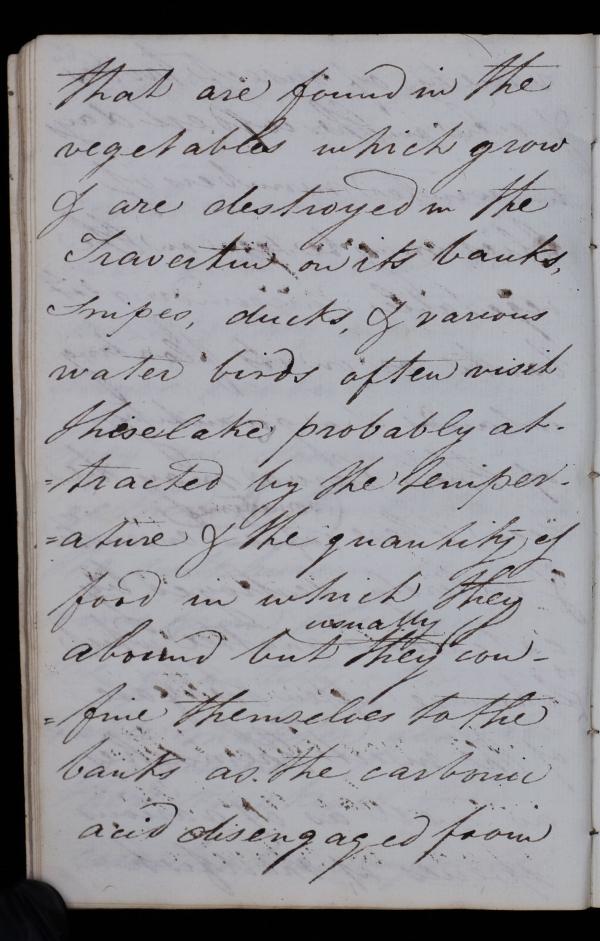 that are found in the
vegetables which grow
& are destroyed in the
Travertin on its banks,
Snipes, ducks, & various
water birds often visit
these lakes probably at-
=tracted by the temper-
=ature & the quantity of
food in which they
usually
abound but they con-
=fine themselves to the
banks as the carbonic
acid disengaged from